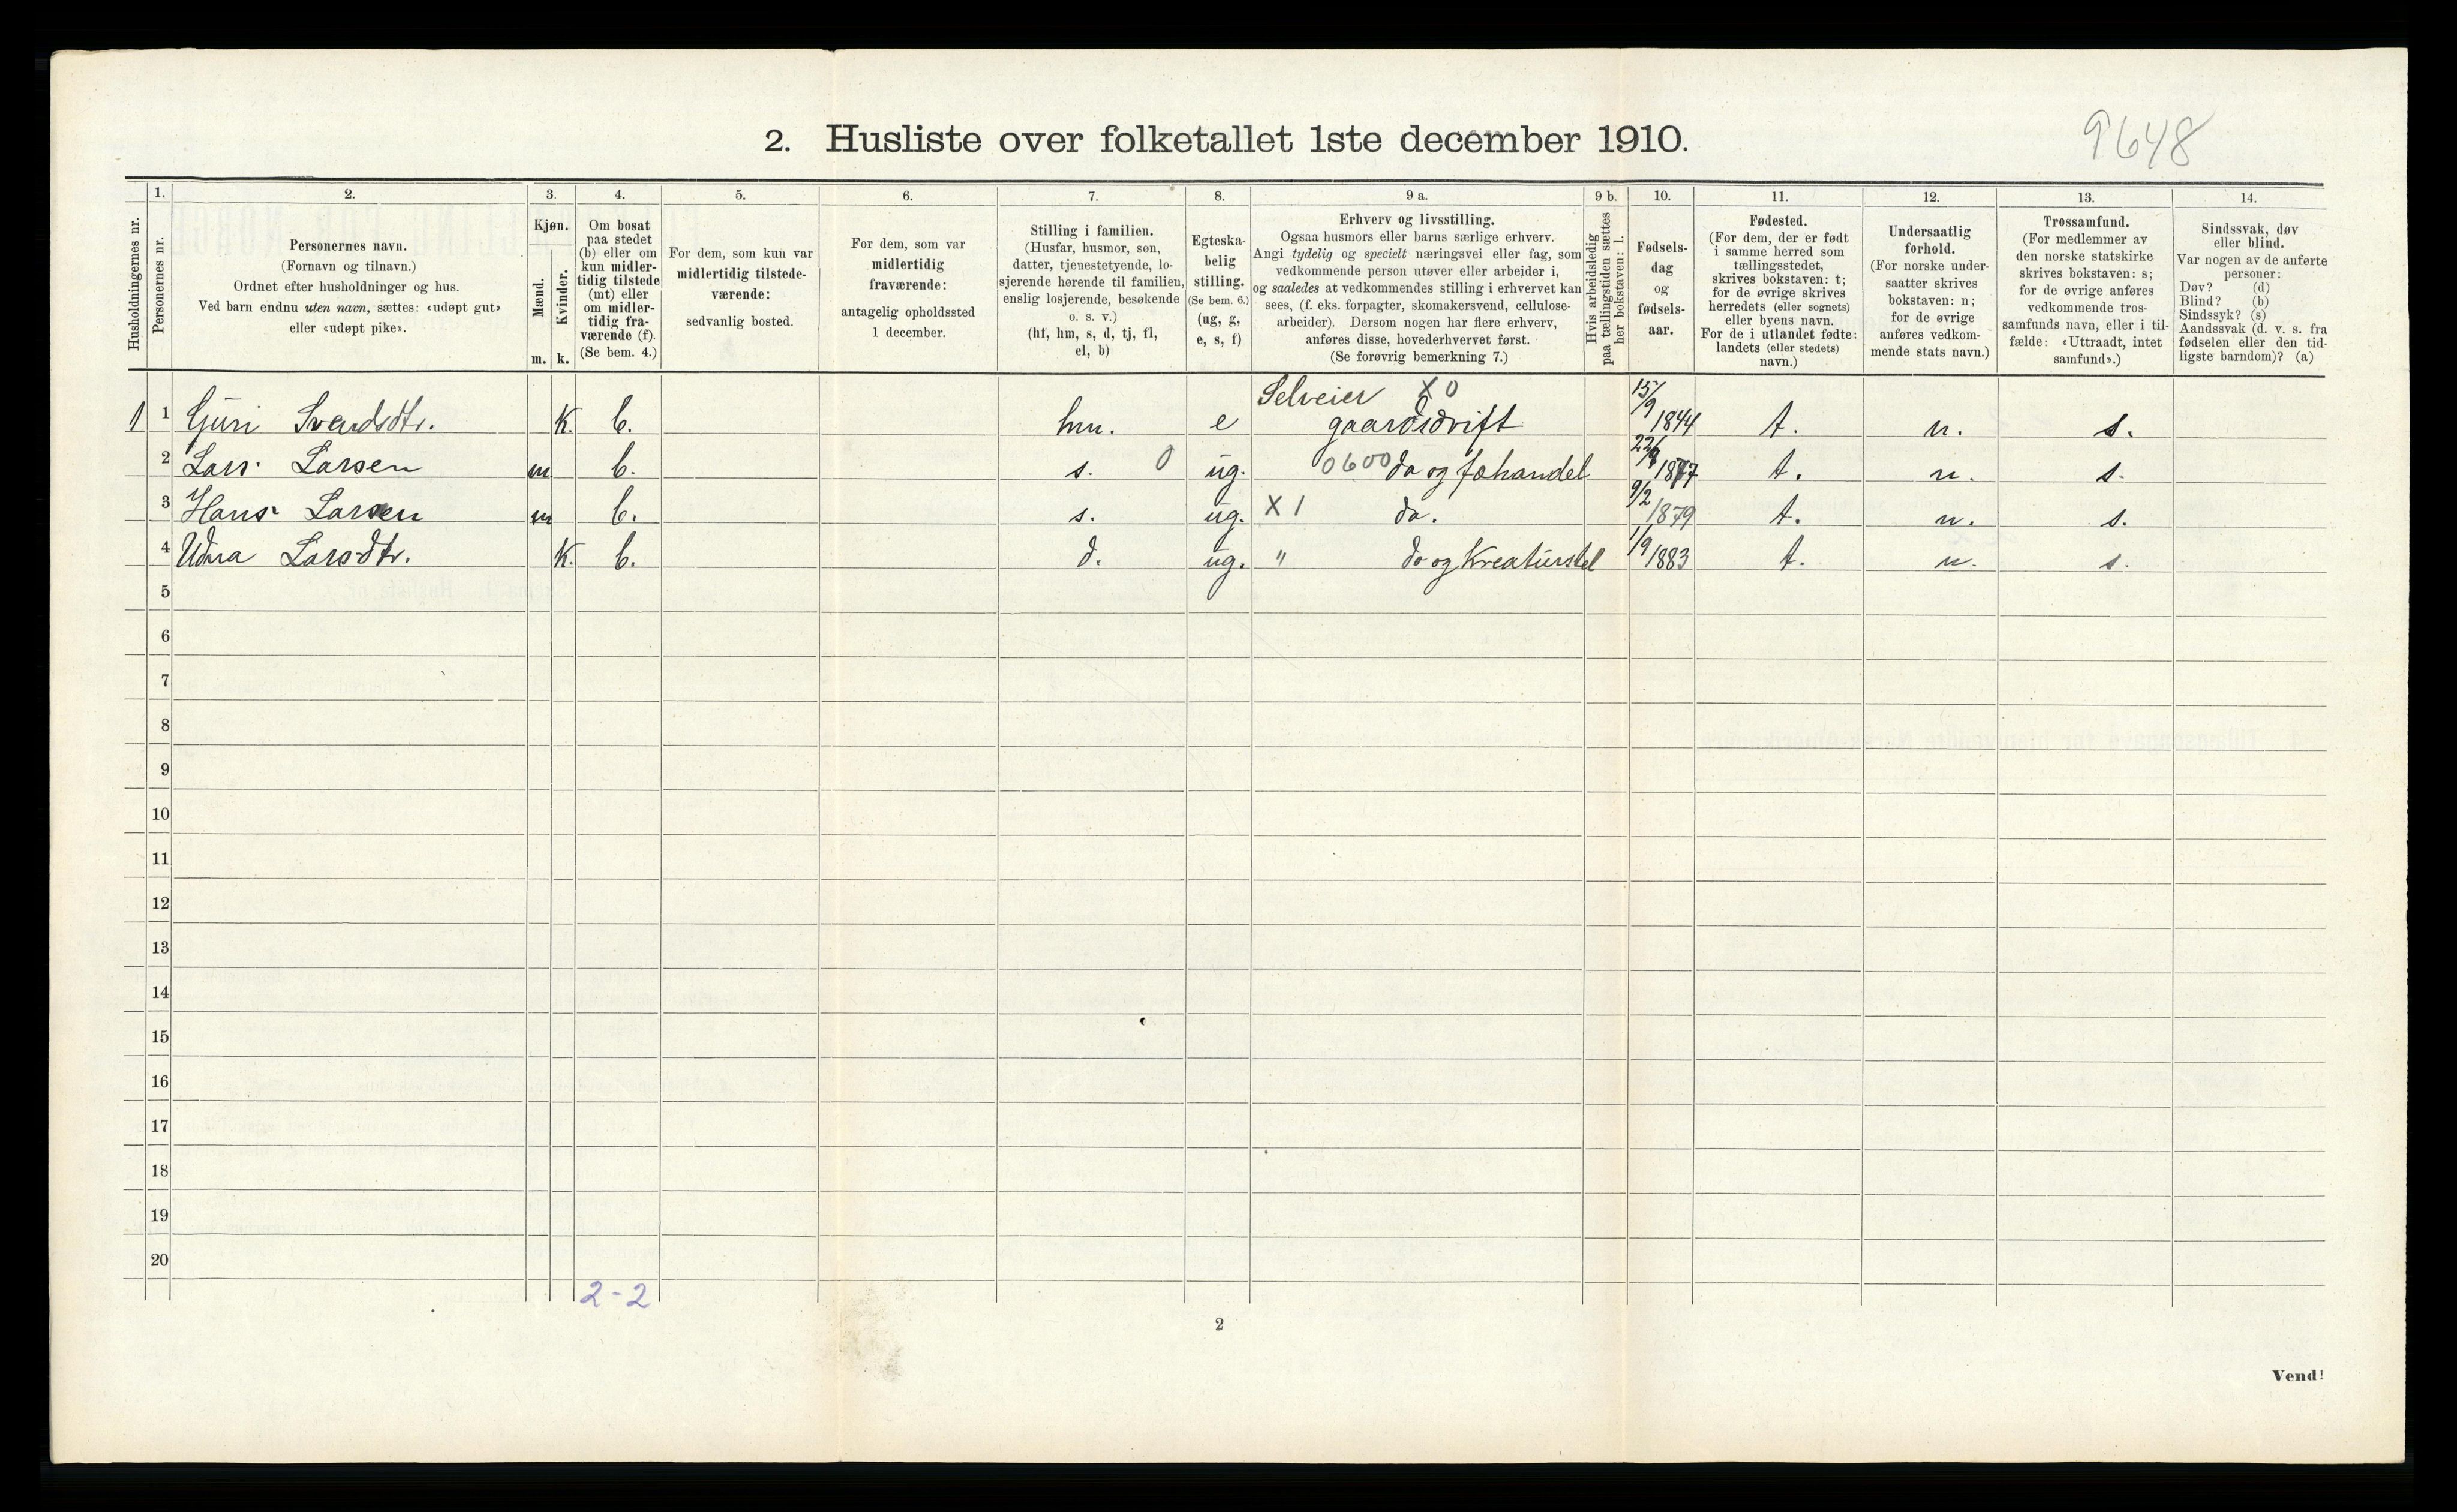 9648
2. Husliste over folketallet 1ste december 1910.
Husholdningernes nr.
1.
Personernes nr.
2.
Personernes navn.
(Fornavn og tilnavn.)
Ordnet efter husholdninger og hus.
Ved barn endnu uten navn, sættes: «udøpt gut»
eller «udøpt pike».
3.
Kjøn.
Mænd.
Kvinder.
m. k.
4.
Om bosat
paa stedet
(b) eller om
kun midler-
tidig tilstede
(mt) eller
om midler-
tidig fra-
værende (f).
(Se bem. 4.)
5.
For dem, som kun var
midlertidig tilstede-
værende:
sedvanlig bosted.
6.
For dem, som var
midlertidig
fraværende:
antagelig opholdssted
1 december.
7.
Stilling i familien.
(Husfar, husmor, søn,
datter, tjenestetyende, lo-
sjerende hørende til familien,
enslig losjerende, besøkende
o. s. v.)
(hf, hm, s, d, tj, fl,
el, b)
8.
Egteska-
belig
stilling.
(Se bem. 6.)
(ug, g,
e, s, f)
9 a.
Erhverv og livsstilling.
Ogsaa husmors eller barns særlige erhverv.
Angi tydelig og specielt næringsvei eller fag, som
vedkommende person utøver eller arbeider i,
og saaledes at vedkommendes stilling i erhvervet kan
sees, (f. eks. forpagter, skomakersvend, cellulose-
arbeider). Dersom nogen har flere erhverv,
anføres disse, hovederhvervet først.
(Se forøvrig bemerkning 7.)
9 b.
Hvis arbeidsledig
paa tællingstiden sættes
her bokstaven: l.
10.
Fødsels-
dag
og
fødsels-
aar.
11.
Fødested.
(For dem, der er født
i samme herred som
tællingsstedet,
skrives bokstaven: t;
for de øvrige skrives
herredets (eller sognets)
eller byens navn.
For de i utlandet fødte:
landets (eller stedets)
navn.)
12.
Undersaatlig
forhold.
(For norske under-
saatter skrives
bokstaven: n;
for de øvrige
anføres vedkom-
mende stats navn.)
13.
Trossamfund.
(For medlemmer av
den norske statskirke
skrives bokstaven: s;
for de øvrige anføres
vedkommende tros-
samfunds navn, eller i til-
fælde: «Uttraadt, intet
samfund».)
14.
Sindssvak, døv
eller blind.
Var nogen av de anførte
personer:
Døv? (d)
Blind? (b)
Sindssyk? (s)
Aandssvak (d. v. s. fra
fødselen eller den tid-
ligste barndom)? (a)
Selveier X 0
1 1 Guri Svendsdtr. K. b. hm. e gaardsdrift 15/9 1844 t. n. s.
2 Lars Larsen m b. s. 0 ug. 0600 do og fæhandel 1877 t. n. s.
3 Hans Larsen m b. s. ug. X 1 do. 9/2 1879 t. n. s.
4 Larsdtr. K. b. d. ug. " do og Kreaturstel 1/9 1883 t. n. s.
5
6
7
8
9
10
11
12
13
14
15
16
17
18
19
20
2-2
2
Vend!